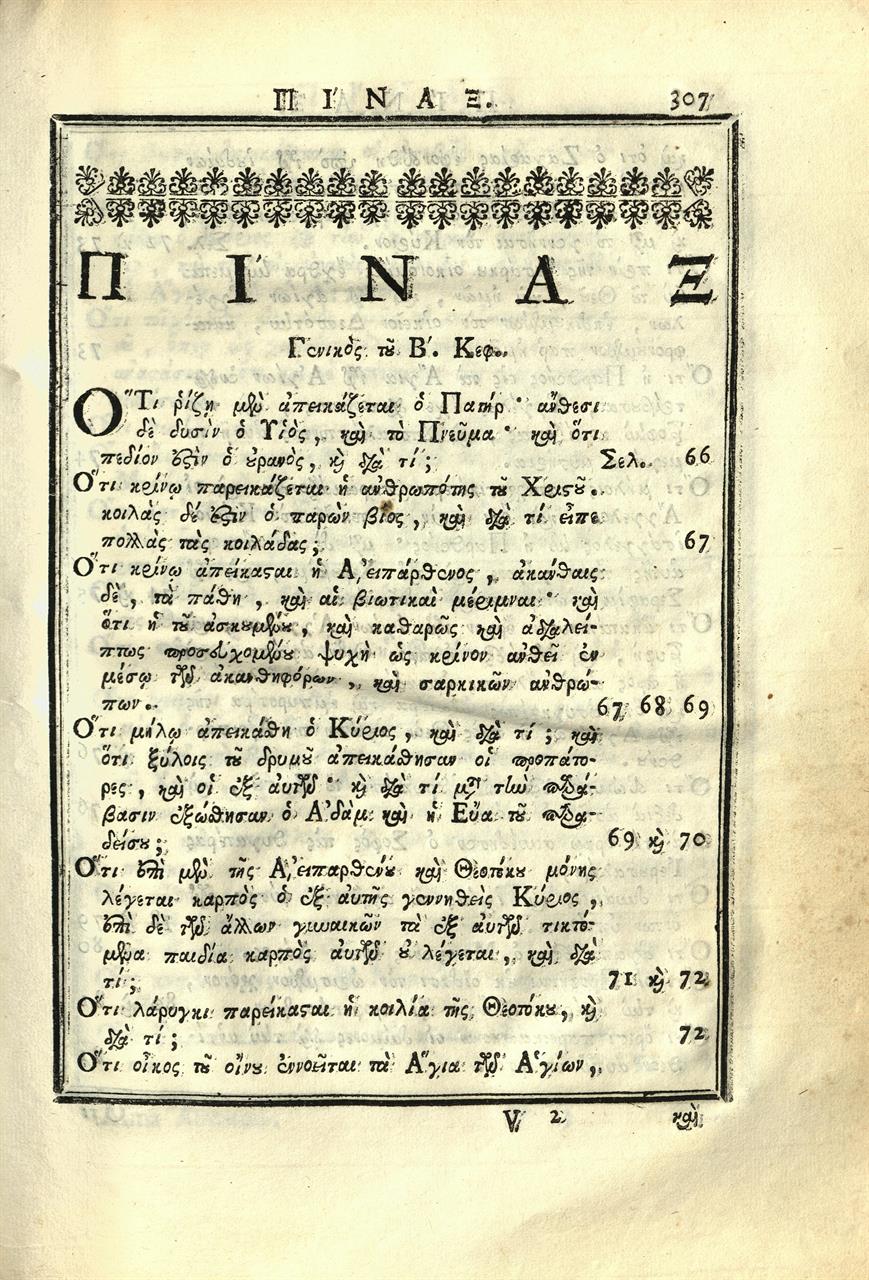 Π Ι Ν Α Ξ. 307
Π Ι Ν Α Ξ
Γενικὸς τοῦ Β'. Κεφ.
Ὅτι ῥίζῃ μὲν ἀπεικάζεται ὁ Πατήρ· ἄνθεσι
δὲ δυσὶν ὁ Υἱὸς, καὶ τὸ Πνεῦμα· καὶ ὅτι
πεδίον ἐστὶν ὁ οὐρανὸς, καὶ διὰ τί; Σελ. 66
Ὅτι κρίνῳ παρεικάζεται ἡ ἀνθρωπότης τοῦ Χριστοῦ.
κοιλὰς δέ ἐστιν ὁ παρὼν βίος, καὶ διὰ τί εἶπε
πολλὰς τὰς κοιλάδας; 67
Ὅτι κρίνῳ ἀπείκασται ἡ Ἀειπάρθενος, ἀκάνθαις
δὲ, τὰ πάθη, καὶ αἱ βιωτικαὶ μέριμναι· καὶ
ὅτι ἡ τοῦ ἀσκουμένου, καὶ καθαρῶς καὶ ἀδιαλεί-
πτως προσευχομένου ψυχὴ ὡς κρίνον ἀνθεῖ ἐν
μέσῳ τῶν ἀκανθηφόρων, καὶ σαρκικῶν ἀνθρώ-
πων. 67 68 69
Ὅτι μήλῳ ἀπεικάθη ὁ Κύριος, καὶ διὰ τί; καὶ
ὅτι ξύλοις τοῦ δρυμοῦ ἀπεικάθησαν οἱ προπάτο-
ρες, καὶ οἱ ἐξ αὐτῶν· καὶ διὰ τί μετὰ τὴν παρά-
βασιν ἐξώθησαν ὁ Ἀδὰμ καὶ ἡ Εὔα τοῦ παρα-
δείσου; 69 καὶ 70
Ὅτι ἐπὶ μὲν τῆς Ἀειπαρθένου καὶ Θεοτόκου μόνης
λέγεται καρπὸς ὁ ἐξ αὐτῆς γεννηθεὶς Κύριος,
ἐπὶ δὲ τῶν ἄλλων γυναικῶν τὰ ἐξ αὐτῶν τικτό-
μενα παιδία καρπὸς αὐτῶν οὐ λέγεται, καὶ διὰ
τί; 71 καὶ 72
Ὅτι λάρυγκι παρείκασται ἡ κοιλία τῆς Θεοτόκου, καὶ
διὰ τί; 72
Ὅτι οἶκος τοῦ οἴνου ἐννοεῖται τὰ Ἅγια τῶν Ἁγίων,
V 2 καὶ